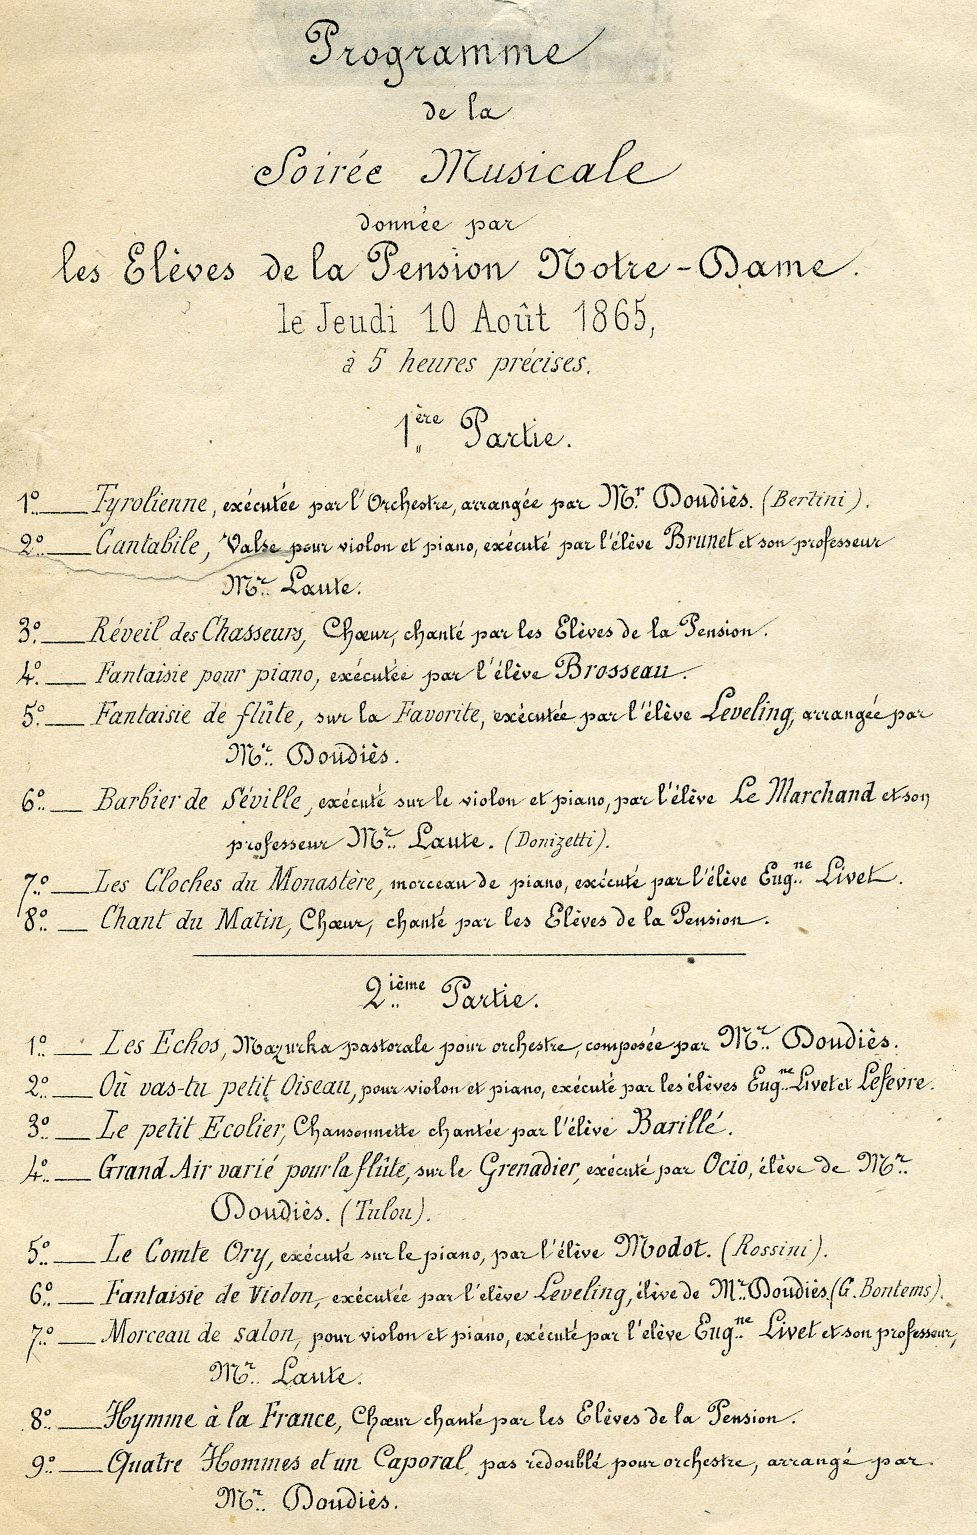 Programme
de la
Soirée Musicale
donnée par
les Elèves de la Pension Notre-Dame.
le Jeudi 10 Août 1865,
à 5 heures précises.
1ère Partie.
1º. — Tyrolienne, exécutée par l'Orchestre, arrangée par Mr. Doudiès. (Bertini).
2º. — Cantabile, Valse pour violon et piano, exécuté par l'élève Brunet et son professeur
Mr. Laute.
3º. — Réveil des Chasseurs, Chœur, chanté par les Elèves de la Pension.
4º. — Fantaisie pour piano, exécutée par l'élève Brosseau.
5º. — Fantaisie de flûte, sur la Favorite, exécutée par l'élève Leveling, arrangée par
Mr. Doudiès.
6º. — Barbier de Séville, exécuté sur le violon et piano, par l'élève Le Marchand et son
professeur Mr. Laute. (Donizetti).
7º. — Les Cloches du Monastère, morceau de piano, exécuté par l'élève Eug.ne Livet.
8º. — Chant du Matin, Chœur, chanté par les Elèves de la Pension.
2ième Partie.
1º. — Les Echos, Mazurka pastorale pour orchestre, composée par Mr. Doudiès.
2º. — Où vas-tu petit Oiseau, pour violon et piano, exécuté par les élèves Eug.ne Livet et Lefevre.
3º. — Le petit Ecolier, Chansonnette chantée par l'élève Barillé.
4º. — Grand Air varié pour la flûte, sur le Grenadier, exécuté par Ocio, élève de Mr.
Doudiès. (Tulou).
5º. — Le Comte Ory, exécuté sur le piano, par l'élève Modot. (Rossini).
6º. — Fantaisie de Violon, exécutée par l'élève Leveling, élève de Mr. Doudiès. (G. Bontems).
7º. — Morceau de salon, pour violon et piano, exécuté par l'élève Eug.ne Livet et son professeur,
Mr. Laute.
8º. — Hymme à la France, Chœur chanté par les Elèves de la Pension.
9º. — Quatre Hommes et un Caporal, pas redoublé pour orchestre, arrangé par
Mr. Doudiès.